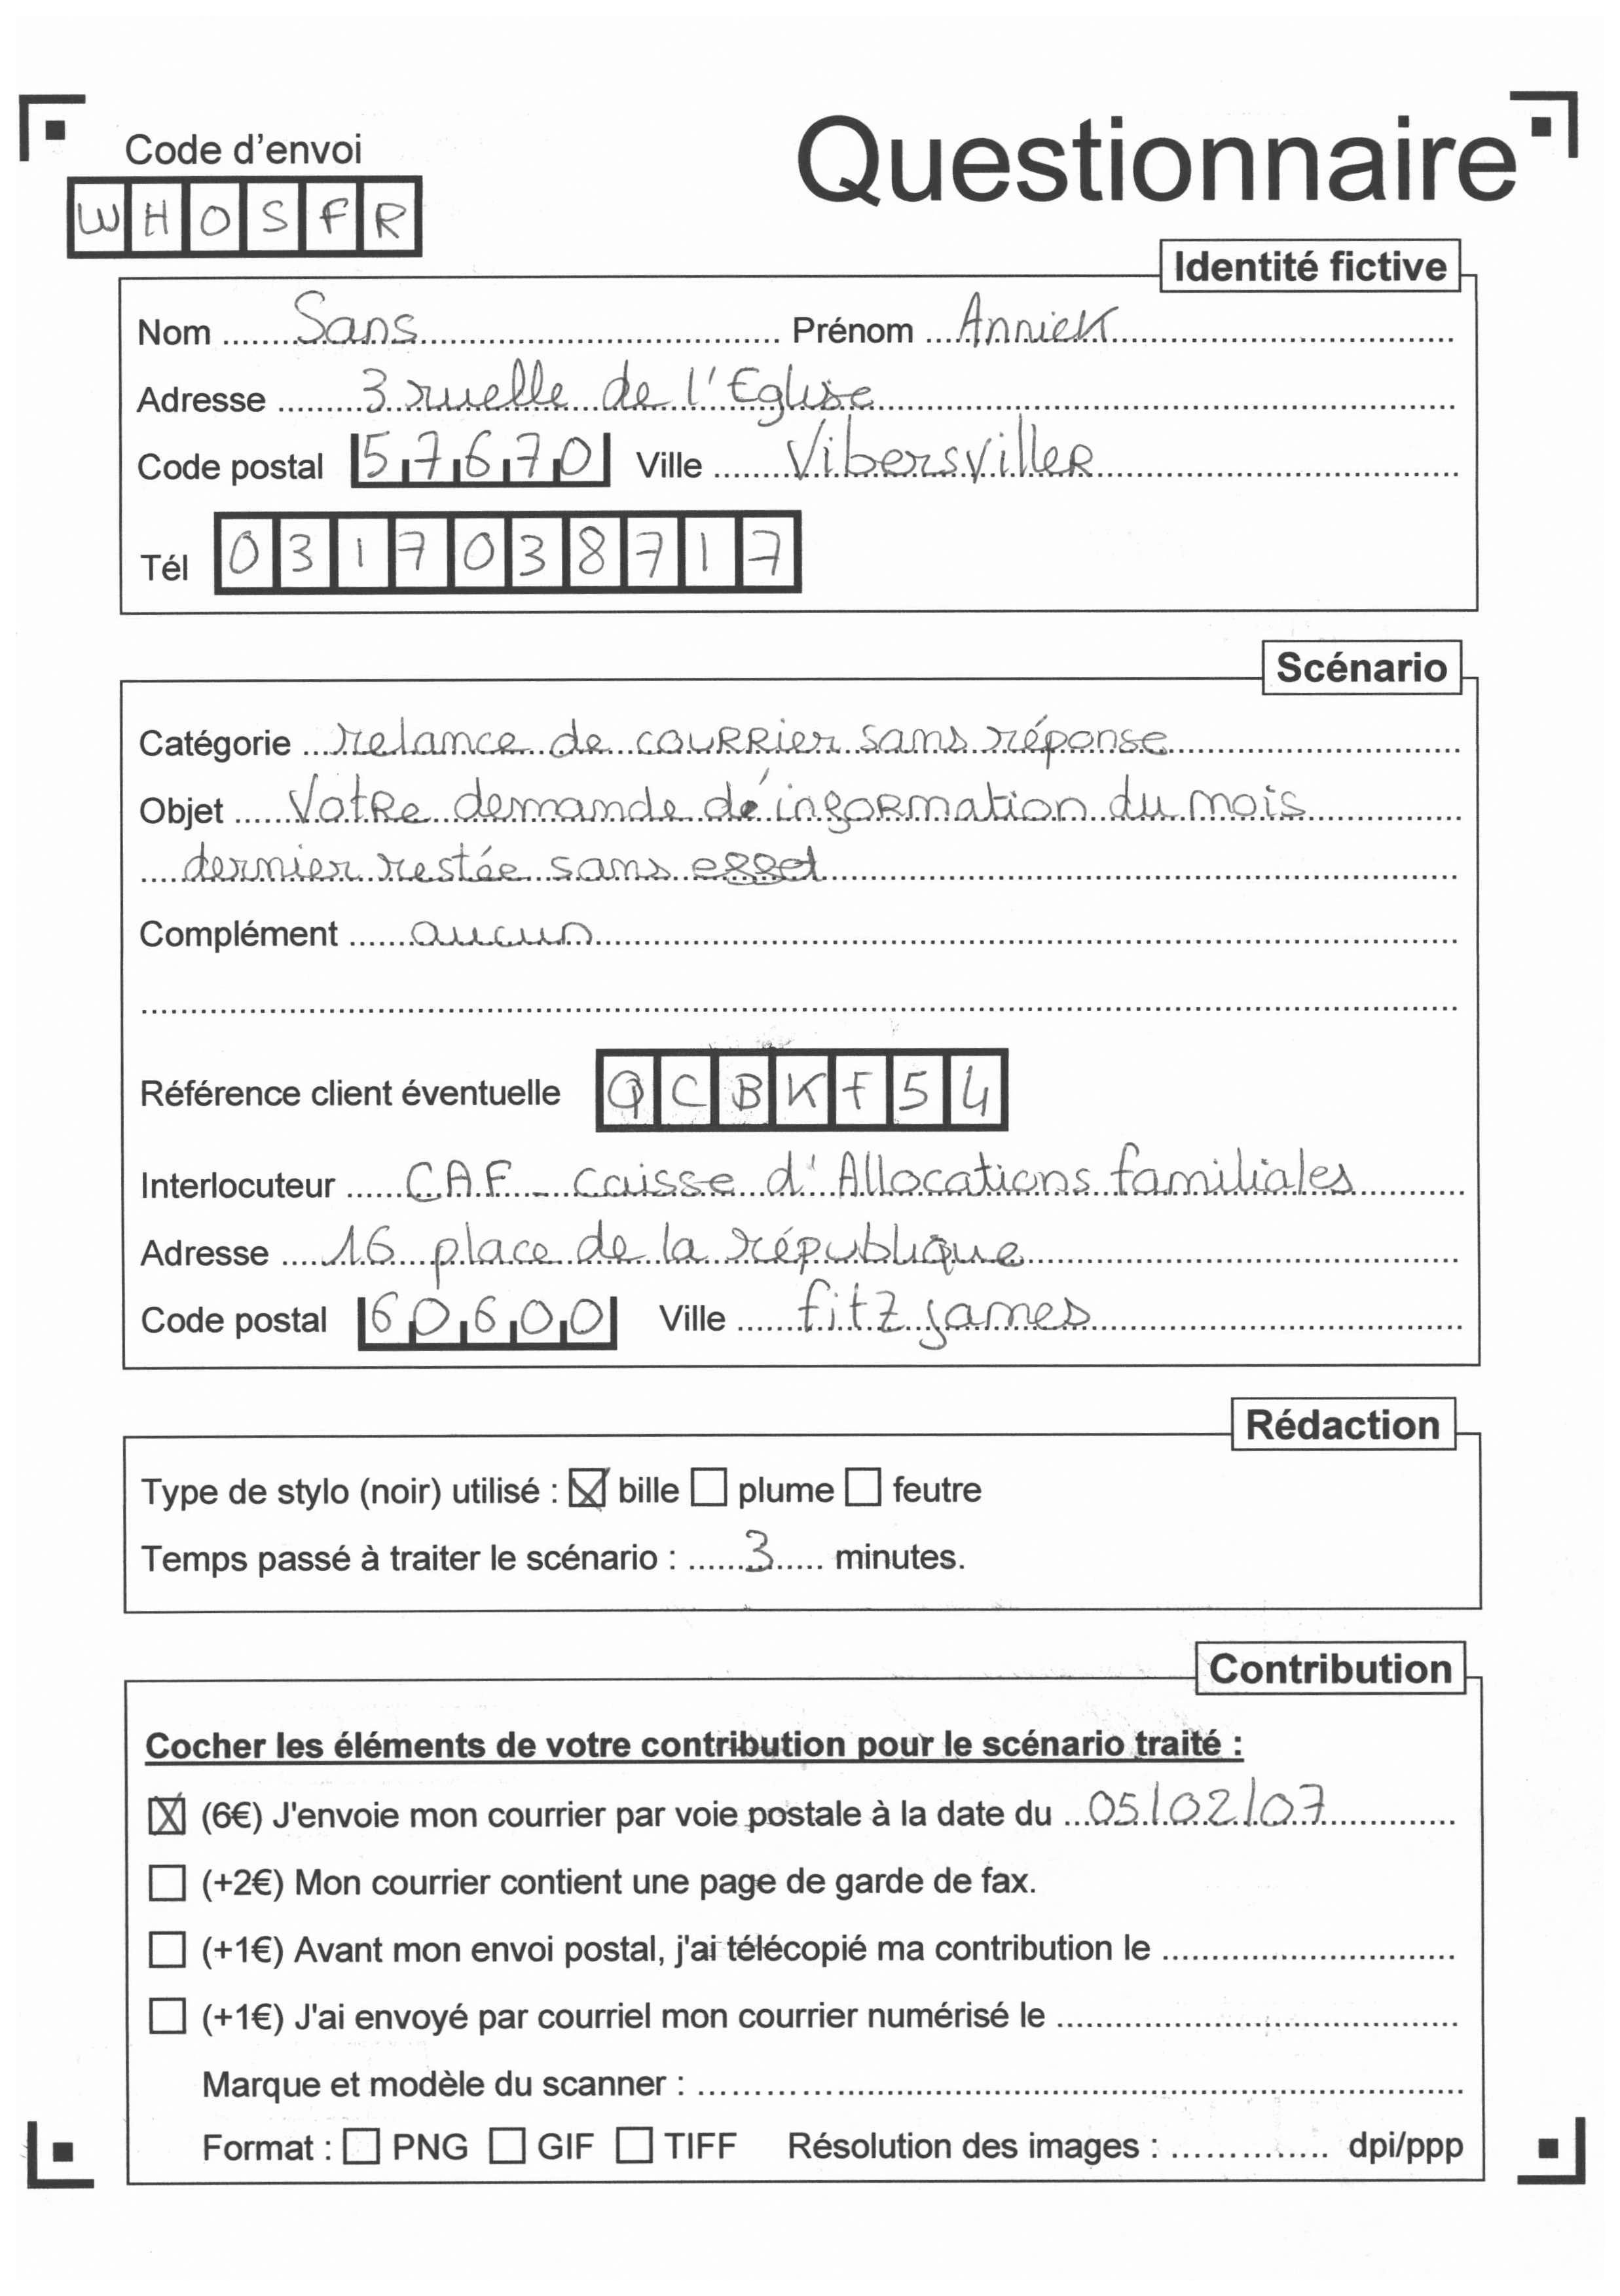 Code d'envoi
Questionnaire
WHOSFR
Identité fictive
Nom Sans Prénom Annick
Adresse 3 ruelle de l'Eglise
Code postal 57670 Ville Vibersviller
Tél 0317038717
Scénario
Catégorie relance de courrier sans réponse
Objet Votre demande d'information du mois
dernier restée sans effet
Complément aucun
Référence client éventuelle QCBKF54
Interlocuteur CAF - caisse d'Allocations familiales
Adresse 16 place de la république
Code postal 60600 Ville fitz james
Rédaction
Type de stylo (noir) utilisé : ☒ bille ☐ plume ☐ feutre
Temps passé à traiter le scénario : 3 minutes.
Contribution
Cocher les éléments de votre contribution pour le scénario traité :
☒ (6€) J'envoie mon courrier par voie postale à la date du 05/02/07
☐ (+2€) Mon courrier contient une page de garde de fax.
☐ (+1€) Avant mon envoi postal, j'ai télécopié ma contribution le
☐ (+1€) J'ai envoyé par courriel mon courrier numérisé le
Marque et modèle du scanner :
Format : ☐ PNG ☐ GIF ☐ TIFF Résolution des images : dpi/ppp